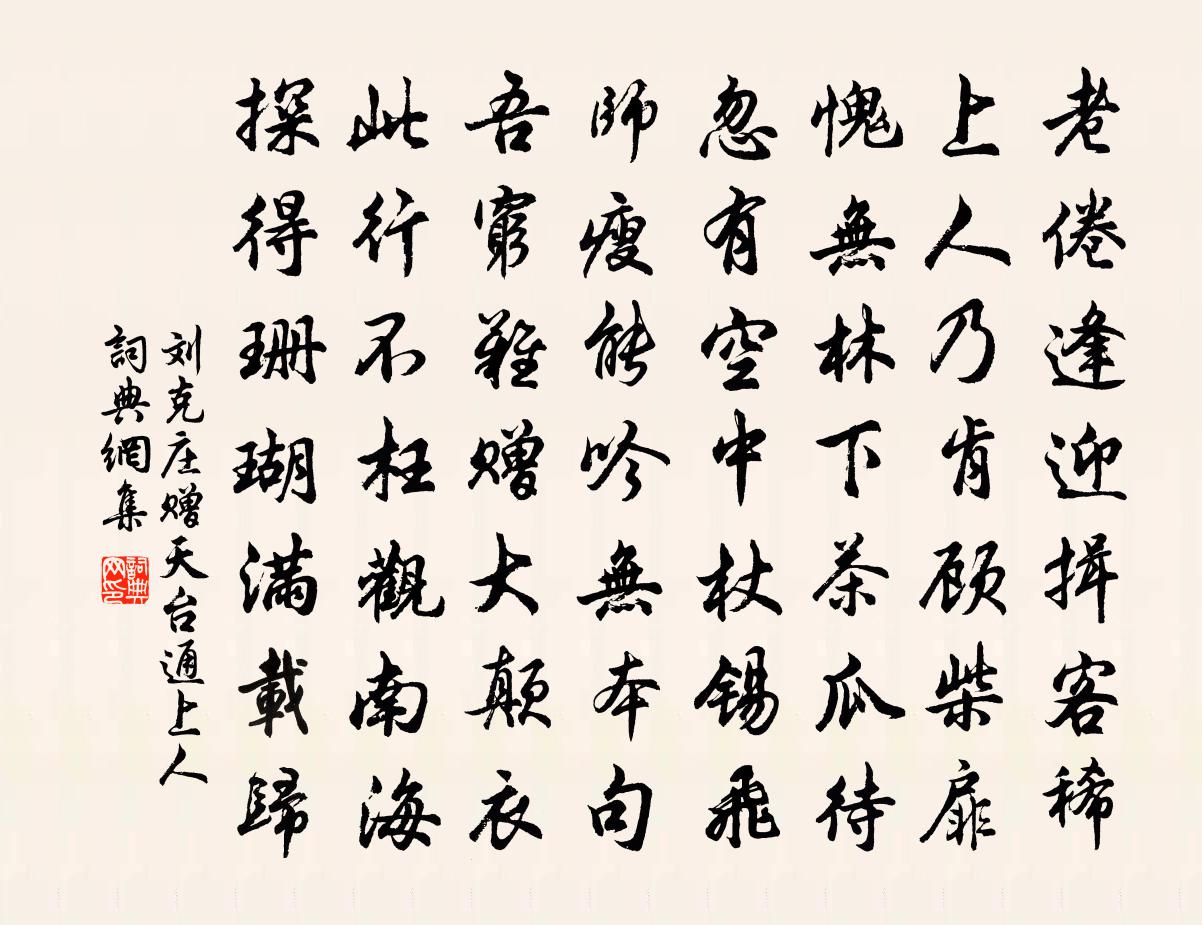 老倦逢迎揖客稀
上人乃肯顾柴扉
愧無林下茶瓜待
忽有空中杖锡飛
師瘦能吟無本句
吾窮難赠大颠衣
此行不枉觀南海
探得珊瑚满載歸
刘克庄赠天台通上人
詞典網集
詞典网印